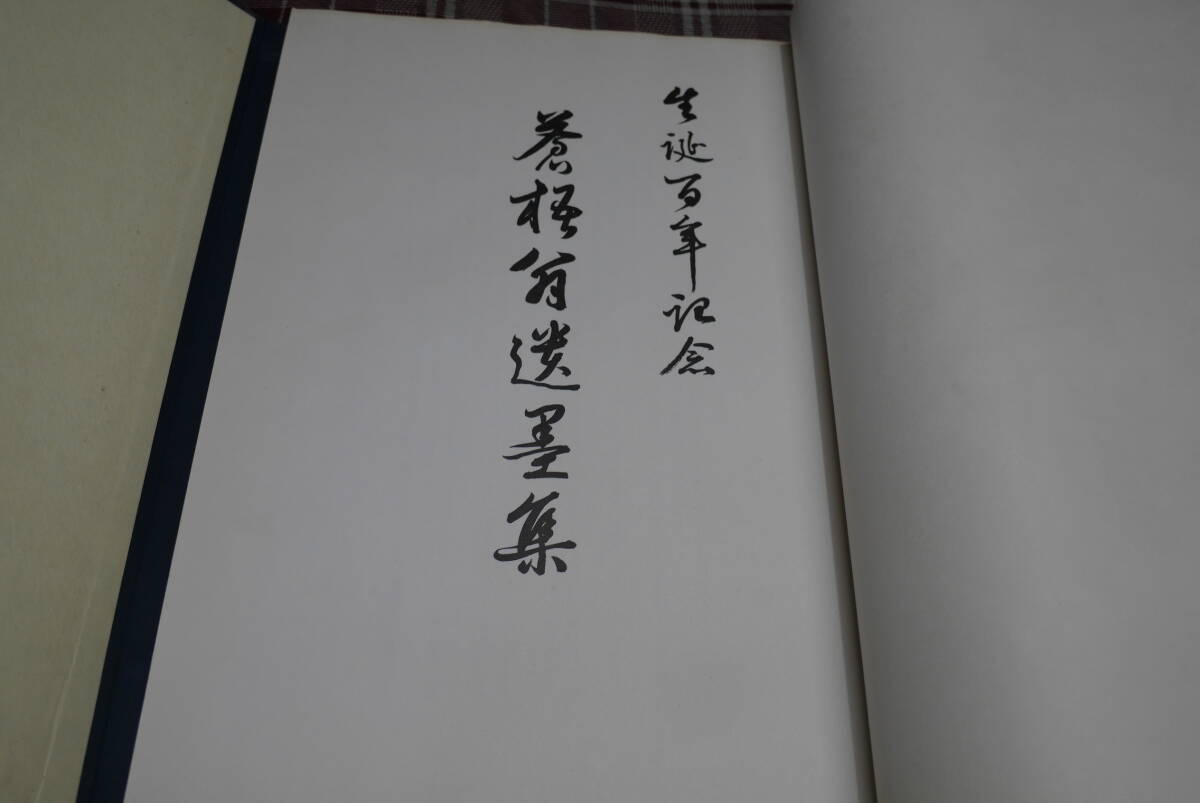 生誕百年記念
蒼梧翁遺墨集